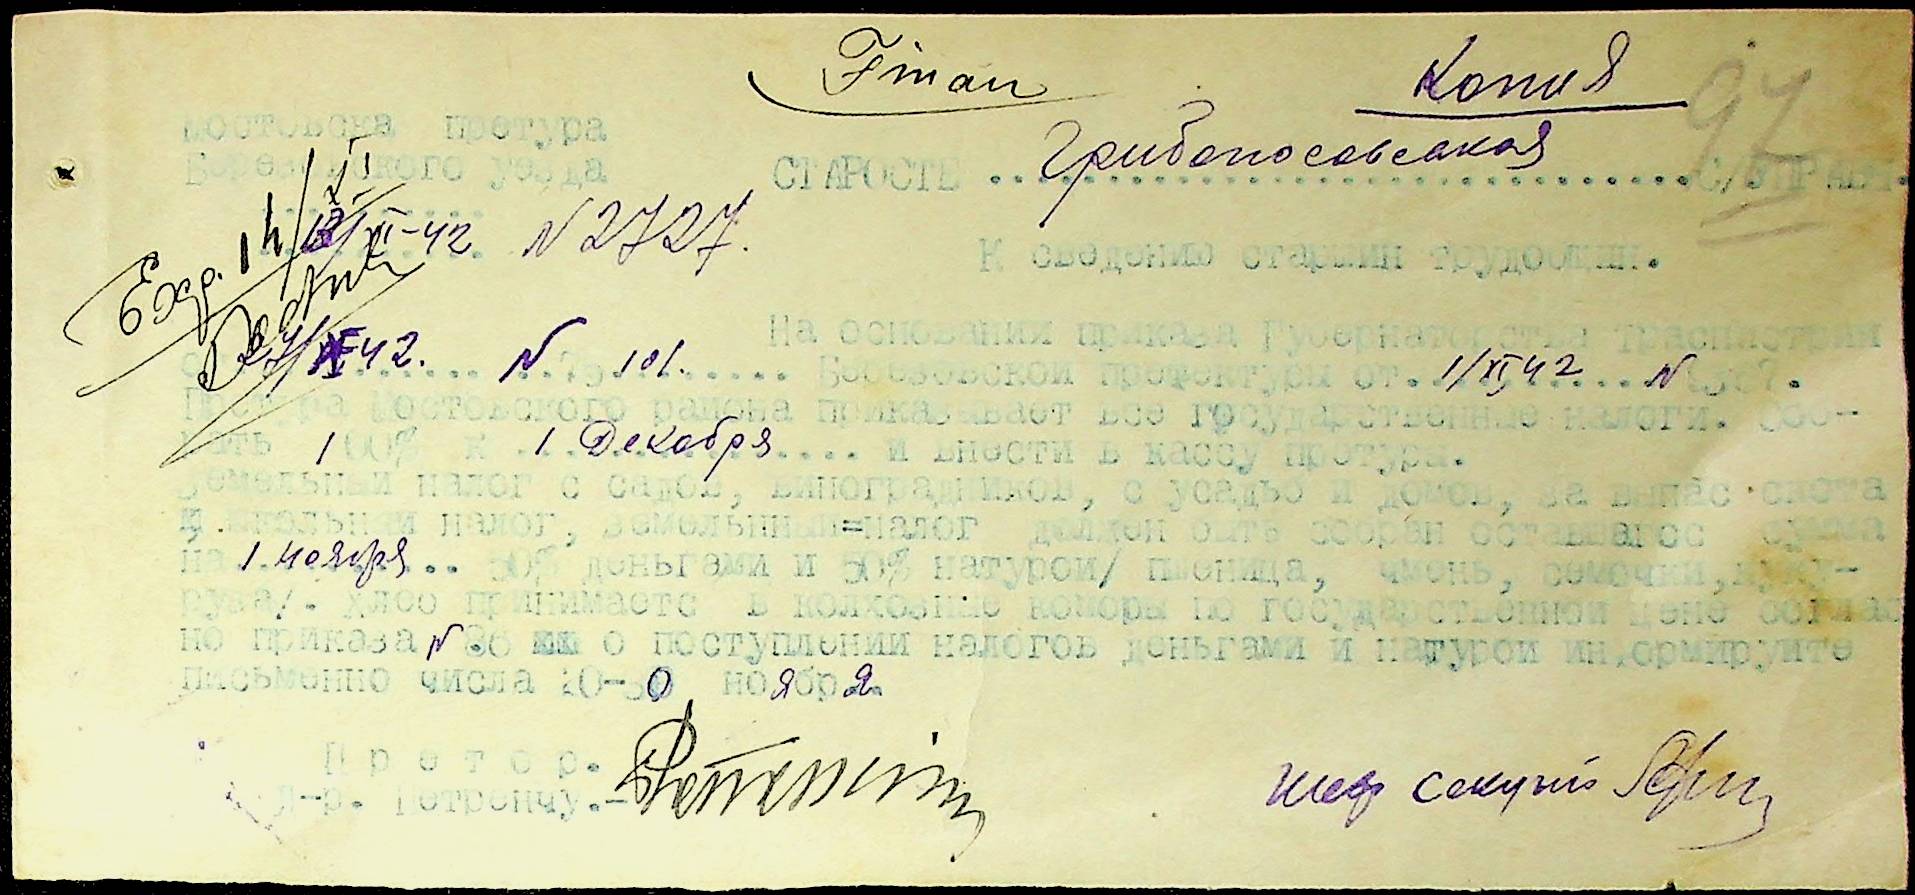 Копия
97
Мостовска претура
Березовского уезда
СТАРОСТЕ Грибоносовская С/УПРАВЫ.
XI-42 N 2727.
К сведению старшин трудобщин.
Вхр. 14/XI
На основании приказа Губернаторства Траснистрии
XI-42. N 101. Березовской префектуры от 1/XI 42 N
Претура Мостовского района приказывает все государственные налоги. Соб-
рать 100% к 1 Декабря и внести в кассу претуры.
Земельный налог с садов, виноградников, с усадьб и домов, за выпас скота
и школьный налог, земельнный=налог должен быть собран оставшаяся сумма
на 1 ноября 50% деньгами и 50% натурой/ пшеница, ячмень, семочки, куку-
руза/. Хлеб принимаетс в колхозные коморы по государственной цене соглас
но приказа N 36 о поступлении налогов деньгами и натурой информируйте
письменно числа ноября.
Претор.
Д-р. Петренчу.-
Шеф секции